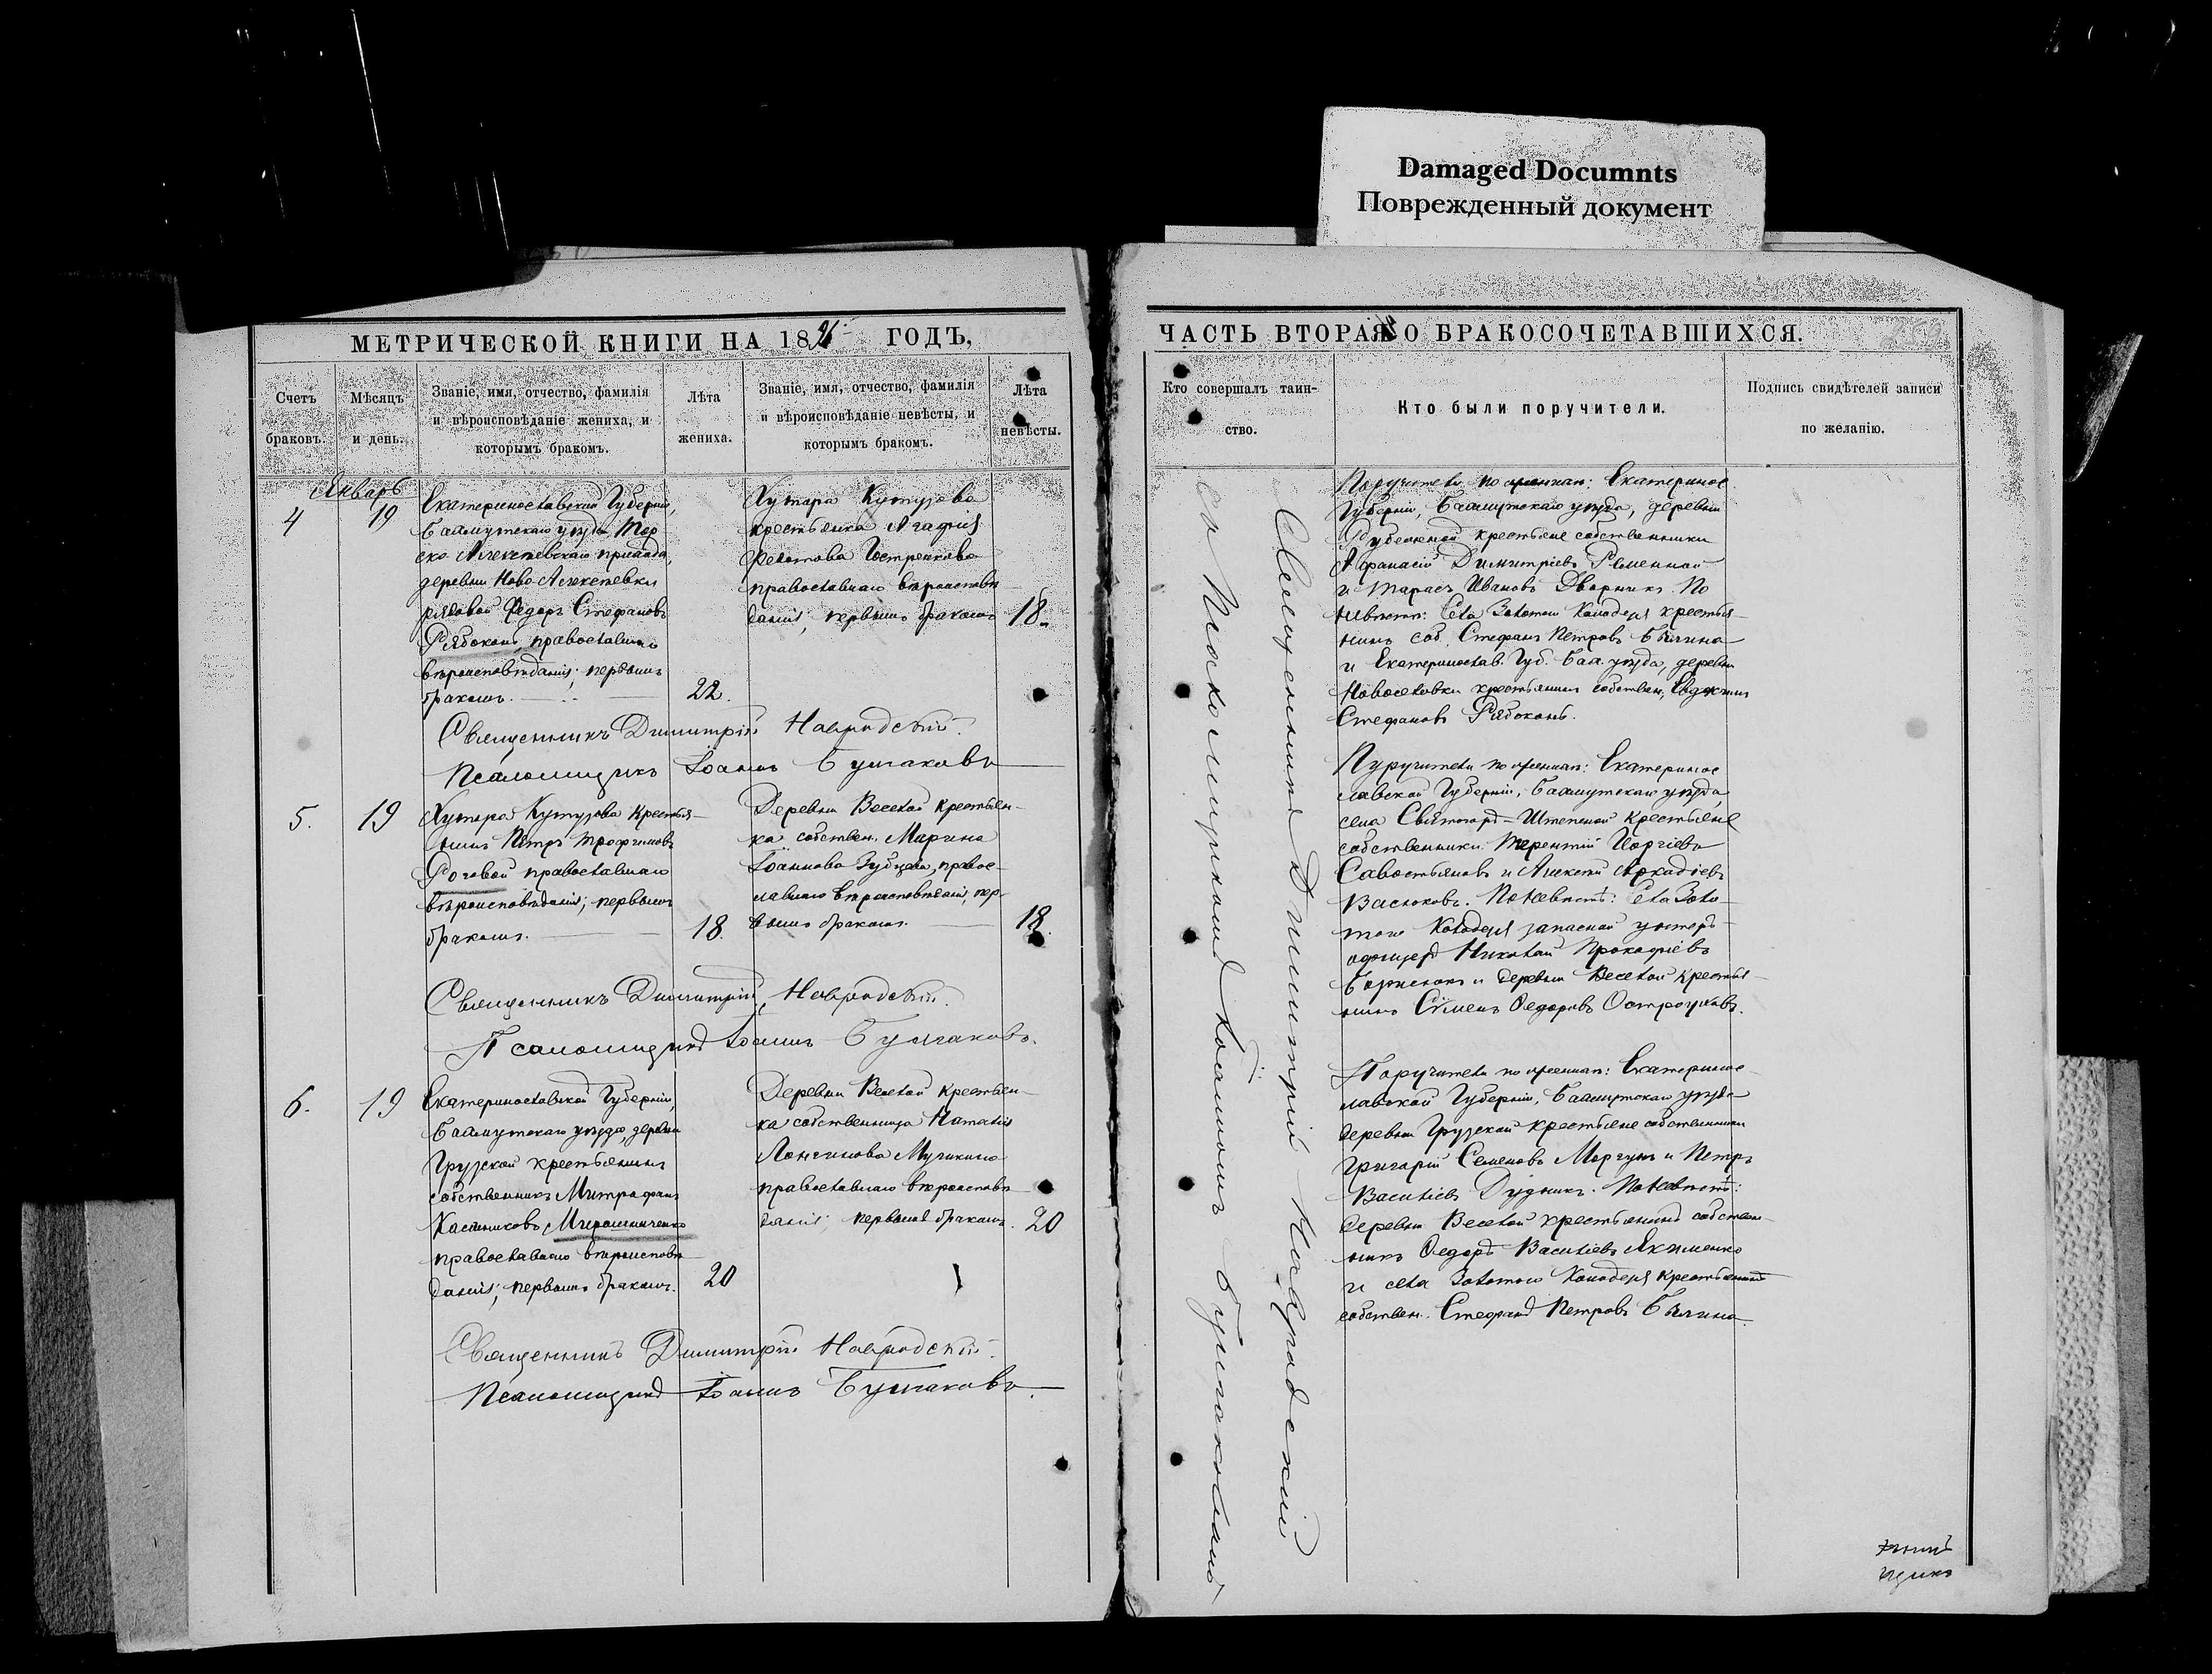 Damaged Documnts
Поврежденный документ
МЕТРИЧЕСКОЙ КНИГИ НА 18 ГОДЪ,
Счетъ браковъ.
Мѣсяцъ и день.
Званіе, имя, отчество, фамилія
и вѣроисповѣданіе жениха, и
которымъ бракомъ.
Лѣта жениха.
Званіе, имя, отчество, фамилія
и вѣроисповѣданіе невѣсты, и
которымъ бракомъ.
Лѣта невѣсты.
Январь
4
19
Екатеринославской Губерніи,
Бахмутскаго уѣзда Тор
ско Алексѣевскаго прихода,
деревни Ново-Алексѣевки
рядовой Федоръ Стефановъ
Рябоконь, православнаго
вѣроисповѣданія; первымъ
бракомъ.
22.
Хутора Кутузова
крестьянка Агафія
Федотова
православнаго вѣроисповѣ
данія, первымъ бракомъ
18
Священникъ Димитрій Навродскій.
Псаломщикъ Іоаннъ Булгаковъ
5.
19
Хутора Кутузова Крестья
нинъ Петръ Трофимовъ
Роговой православнаго
вѣроисповѣданія; первымъ
бракомъ.
18.
Деревни Веселой крестьян-
ка собствен. Марина
Іоаннова православнаго вѣроисповѣданія, пер-
вымъ бракомъ.
18.
Священникъ Димитрій Навродскій.
Псаломщикъ Іоаннъ Булгаковъ.
6.
19
Екатеринославской Губерніи,
Бахмутскаго уѣзда, деревни
Грузской крестьянинъ
собственникъ Митрофанъ
Мирошниченко
православнаго вѣроисповѣ
данія; первымъ бракомъ.
20
Деревни Веселой крестьян-
ка собственница Наталія
Лонгинова
православнаго вѣроисповѣ
данія; первымъ бракомъ.
20
Священникъ Димитрій Навродскій.
Псаломщикъ Іоаннъ Булгаковъ.
ЧАСТЬ ВТОРАЯ О БРАКОСОЧЕТАВШИХСЯ.
Кто совершалъ таин-
ство.
Кто были поручители.
Подпись свидѣтелей записи
по желанію.
Священникъ Димитрій Навродскій
съ Псаломщикомъ Іоанномъ Булгаковымъ
Поручители по женихѣ: Екатеринос
Губерніи, Бахмутскаго уѣзда, деревни
крестьяне собственники
Афанасій Димитріевъ
и Тарасъ Ивановъ Дворникъ. По
невѣстѣ: Села Золотого Колодезя крестья
нинъ соб. Стефанъ Петровъ Бычина
и Екатеринослав. Губ. Бах. уѣзда, деревни
Новоселовки крестьянинъ собствен. Евдокимъ
Стефановъ Рябоконь.
Пуручители по женихѣ: Екатеринос
лавской Губерніи, Бахмутскаго уѣзда,
села крестьяне
собственники Терентій
Савостьяновъ и Алексѣй Аркадіевъ
Васюковъ. По невѣстѣ: Села Золо-
того Колодезя запасной унтеръ-
офицеръ Николай Прокофіевъ
и деревни Веселой крестья-
нинъ Сімеонъ Федоровъ Остроуховъ.
Поручители по женихѣ: Екатеринос-
лавской Губерніи, Бахмутскаго уѣзда
деревни Грузской крестьяне собственники
Григорій Семеновъ Моргунъ и Петръ
Василіевъ Дудникъ. По невѣстѣ:
деревни Веселой крестьянинъ собствен-
никъ Федоръ Василіевъ Якименко
и села Золотого Колодезя крестьянинъ
собствен. Стефанъ Петровъ Бычина.